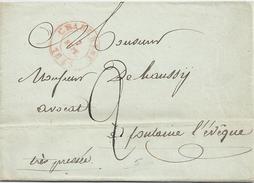 Monsieur
Monsieur De haussy
avocat
à fontaine l'évêque
très pressée
2